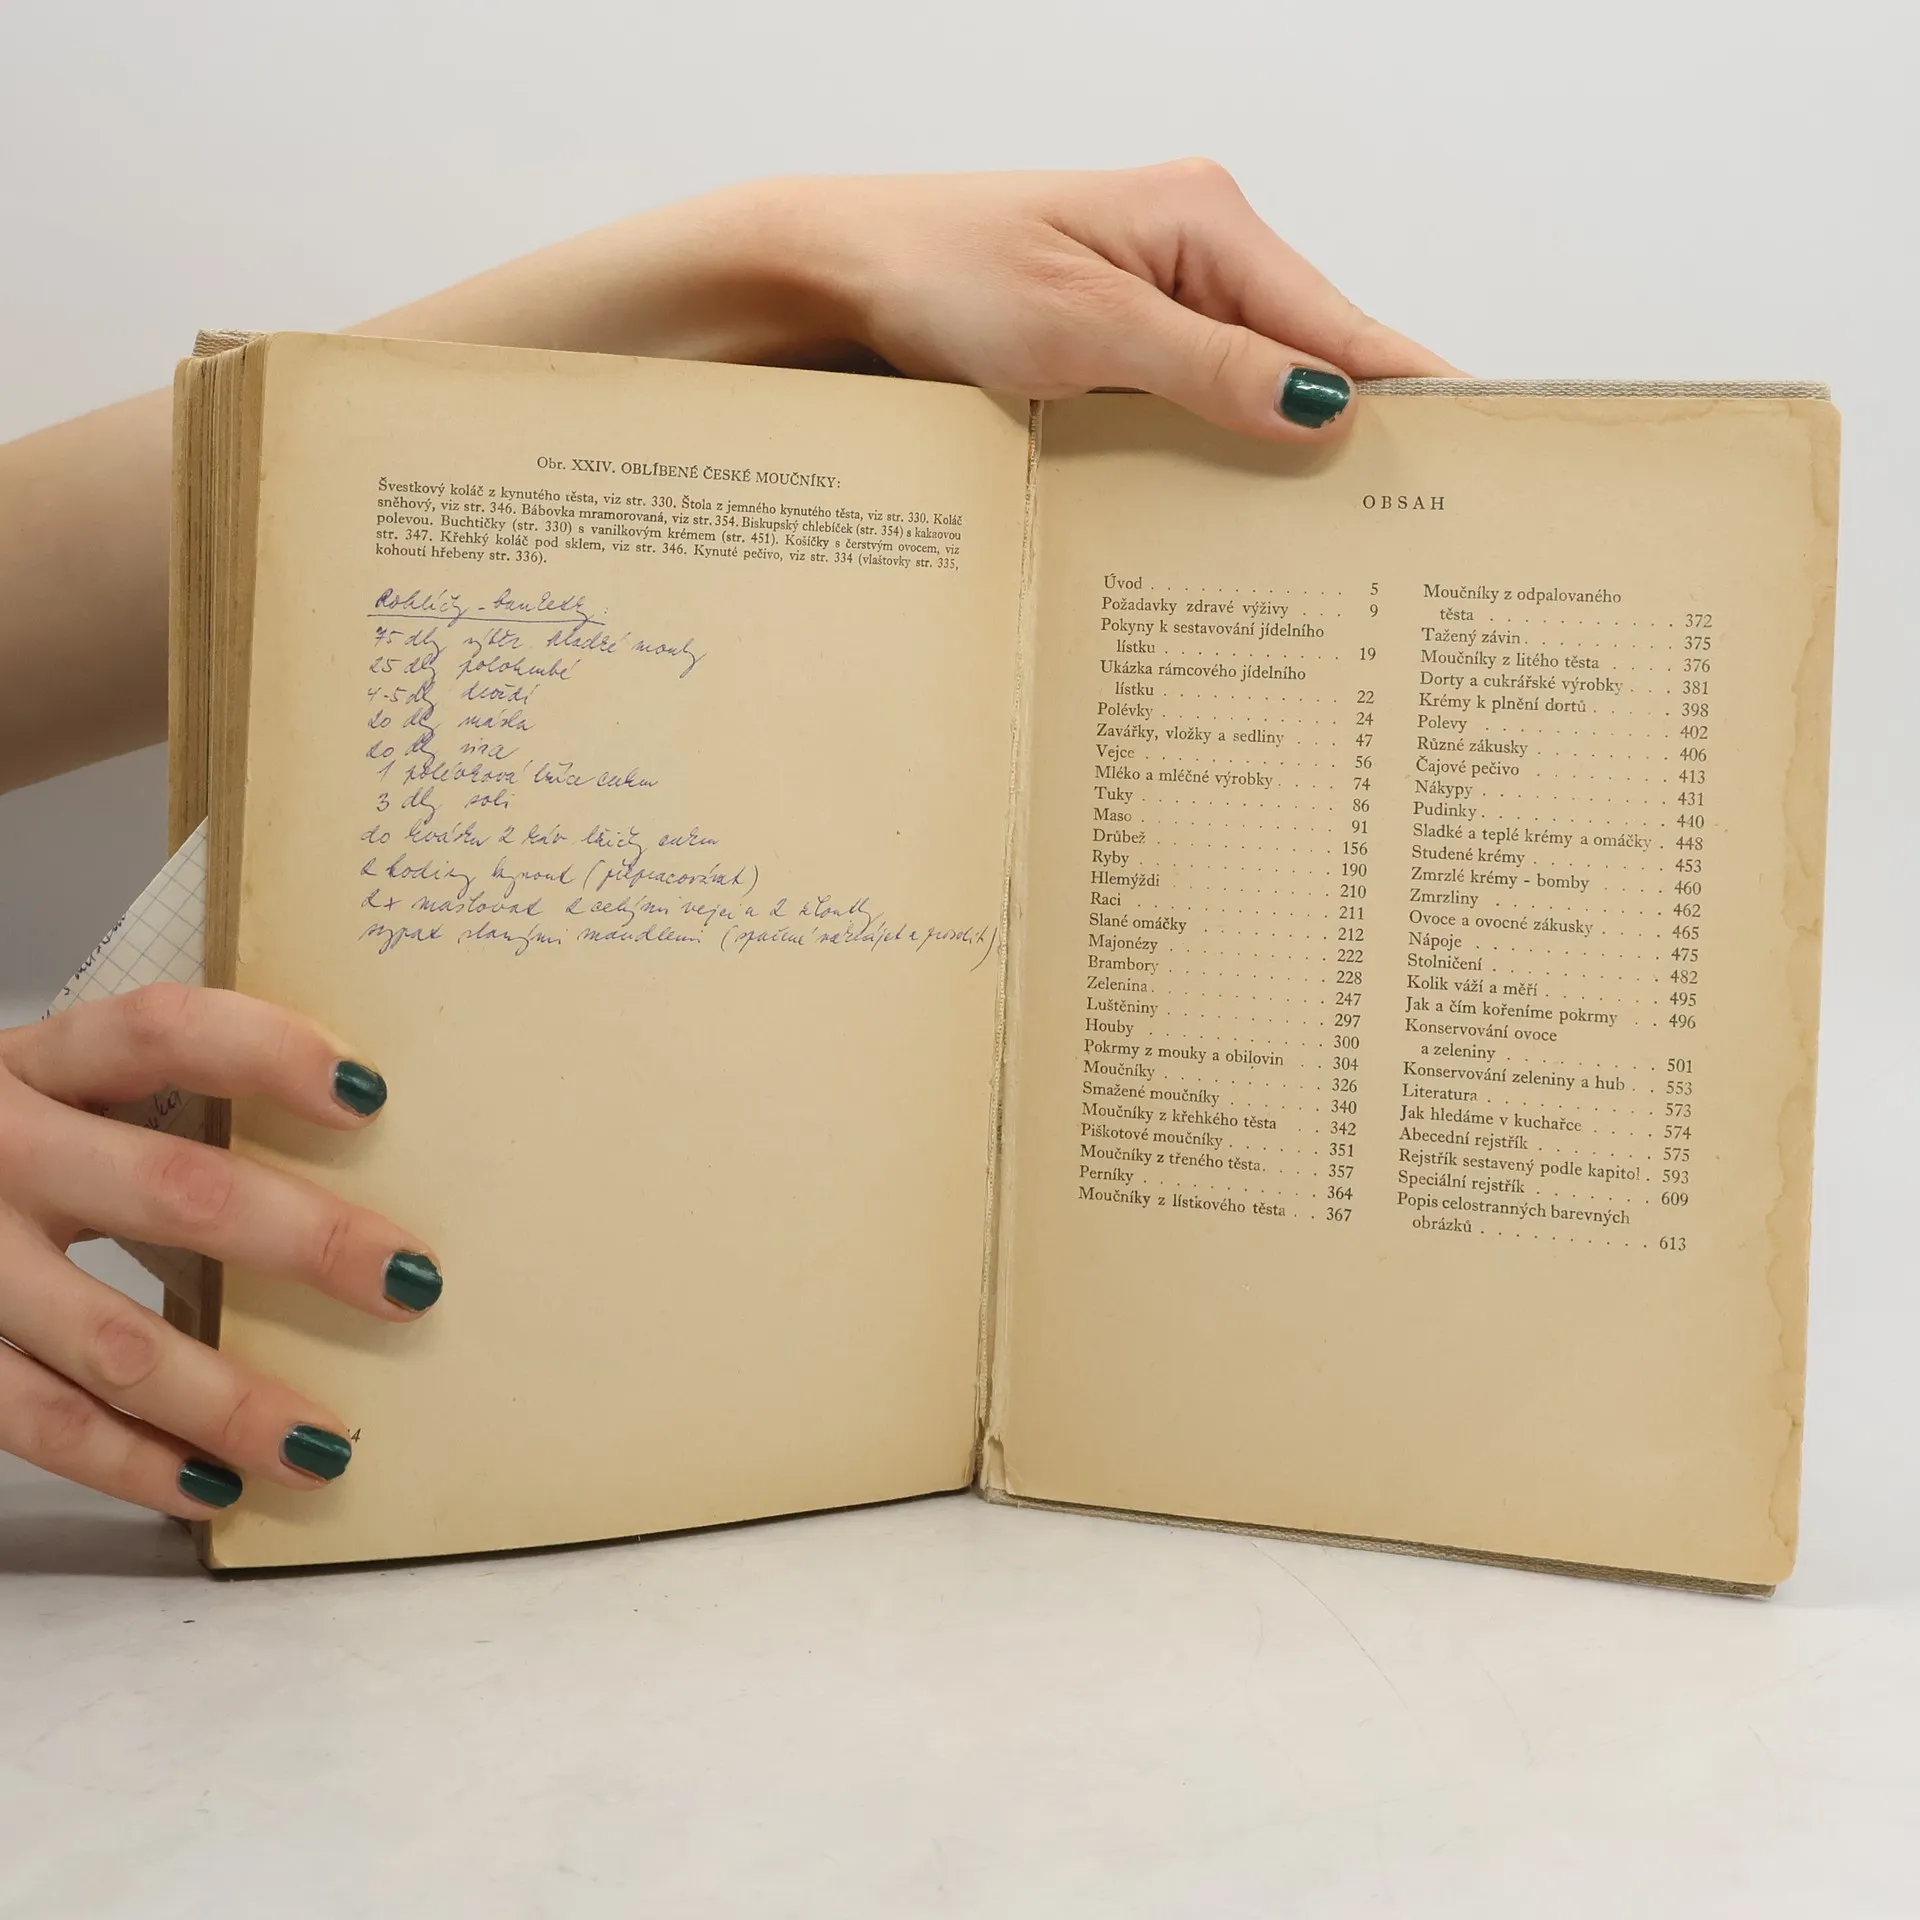 Obr. XXIV. OBLÍBENÉ ČESKÉ MOUČNÍKY:
Švestkový koláč z kynutého těsta, viz str. 330. Štola z jemného kynutého těsta, viz str. 330. Koláč
sněhový, viz str. 346. Bábovka mramorovaná, viz str. 354. Biskupský chlebíček (str. 354) s kakaovou
polevou. Buchtičky (str. 330) s vanilkovým krémem (str. 451). Košíčky s čerstvým ovocem, viz
str. 347. Křehký koláč pod sklem, viz str. 346. Kynuté pečivo, viz str. 334 (vlaštovky str. 335,
kohoutí hřebeny str. 336).
75 dkg hladké mouky
25 dkg polohrubé
4-5 dkg droždí
20 dkg másla
20 dkg
1 polévková lžíce cukru
3 dkg soli
do kvásku 2 káv. lžičky cukru
2 hodiny kynout (přepracovávat)
2x maslovat 2 celými vejci a 2 žloutky
sypat slanými mandlemi (spařené nakrájet a prosolit)
4
OBSAH
Úvod . . . . . . . . . . . . 5
Požadavky zdravé výživy . . . 9
Pokyny k sestavování jídelního
lístku . . . . . . . . . . . 19
Ukázka rámcového jídelního
lístku . . . . . . . . . . . 22
Polévky . . . . . . . . . . . 24
Zavářky, vložky a sedliny . . . 47
Vejce . . . . . . . . . . . . 56
Mléko a mléčné výrobky . . . . 74
Tuky . . . . . . . . . . . . 86
Maso . . . . . . . . . . . . 91
Drůbež . . . . . . . . . . . 156
Ryby . . . . . . . . . . . . 190
Hlemýždi . . . . . . . . . . 210
Raci . . . . . . . . . . . . 211
Slané omáčky . . . . . . . . 212
Majonézy . . . . . . . . . . 222
Brambory . . . . . . . . . . 228
Zelenina . . . . . . . . . . 247
Luštěniny . . . . . . . . . . 297
Houby . . . . . . . . . . . 300
Pokrmy z mouky a obilovin . . 304
Moučníky . . . . . . . . . . 326
Smažené moučníky . . . . . . 340
Moučníky z křehkého těsta . . 342
Piškotové moučníky . . . . . . 351
Moučníky z třeného těsta . . . . 357
Perníky . . . . . . . . . . . 364
Moučníky z lístkového těsta . . 367
Moučníky z odpalovaného
těsta . . . . . . . . . . . 372
Tažený závin . . . . . . . . . 375
Moučníky z litého těsta . . . . 376
Dorty a cukrářské výrobky . . . 381
Krémy k plnění dortů . . . . . 398
Polevy . . . . . . . . . . . 402
Různé zákusky . . . . . . . . 406
Čajové pečivo . . . . . . . . 413
Nákypy . . . . . . . . . . . 431
Pudinky . . . . . . . . . . . 440
Sladké a teplé krémy a omáčky . 448
Studené krémy . . . . . . . . 453
Zmrzlé krémy - bomby . . . . 460
Zmrzliny . . . . . . . . . . 462
Ovoce a ovocné zákusky . . . . 465
Nápoje . . . . . . . . . . . 475
Stolničení . . . . . . . . . . 482
Kolik váží a měří . . . . . . . 495
Jak a čím kořeníme pokrmy . . 496
Konservování ovoce
a zeleniny . . . . . . . . . 501
Konservování zeleniny a hub . . 553
Literatura . . . . . . . . . . 573
Jak hledáme v kuchařce . . . . 574
Abecední rejstřík . . . . . . . 575
Rejstřík sestavený podle kapitol . 593
Speciální rejstřík . . . . . . . 609
Popis celostranných barevných
obrázků . . . . . . . . . . 613